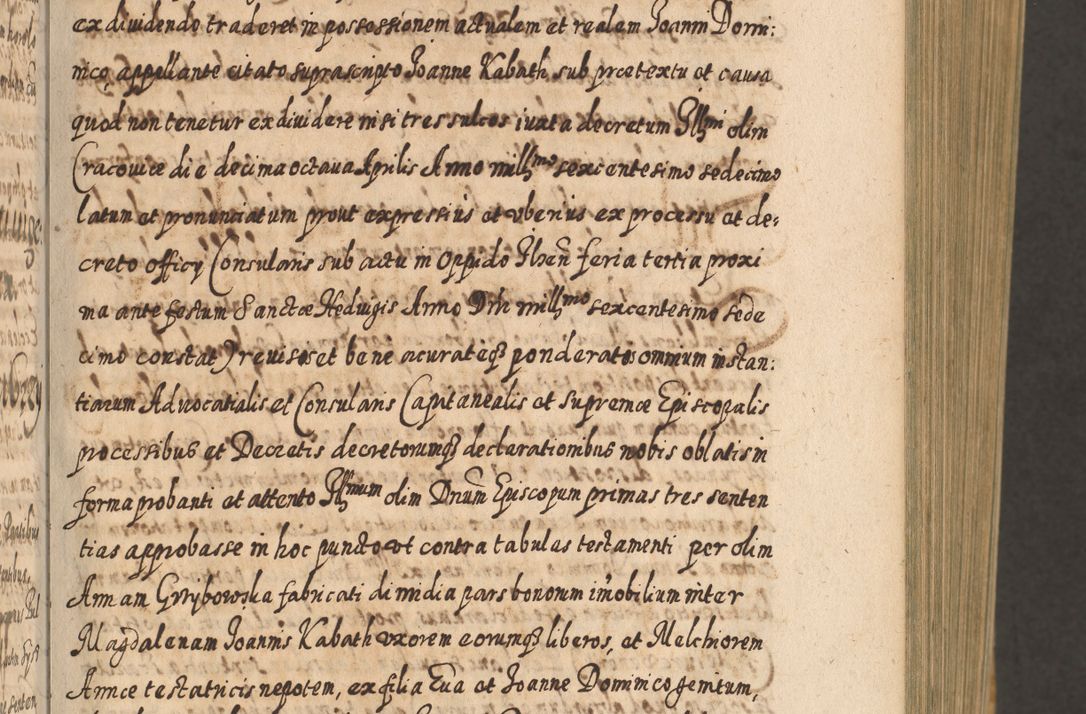 ex dividendo traderet in possessionem actualem et realem Joanni Domi:
nico appellante citato suprascripto Joanne Kabath, sub prætextu et causa
quod non tenetur exdividere nisi tres sulcos iuxta decretum Illmi olim
Cracoviæ die decima octava Aprilis Anno millmo sexcentesimo sedecimo
latum et pronunciatum prout expressius et uberius ex processu et de=
creto officij Consularis sub actu in Oppido Ilzen feria tertia proxi
ma ante festum Sanctæ Hedvigis Anno Dni millmo sexcentesimo sede
cimo constat) revisis et bene acurateqz ponderatis omnium instan:
tiarum Advocatialis et Consularis Capitanealis et supremæ Episcopalis
processibus et Decretis decretorumqz declarationibus nobis oblatis in
forma probanti et attento Illmum olim Dnum Episcopum primas tres senten
tias approbasse in hoc puncto ut contra tabulas testamenti per olim
Annam Grzybowska fabricati dimidia pars bonorum imobilium inter
Magdalenam Joannis Kabath uxorem eorumqz liberos, et Melchiorem
Annæ testatricis nepotem, ex filia Eva et Joanne Dominico genitum,